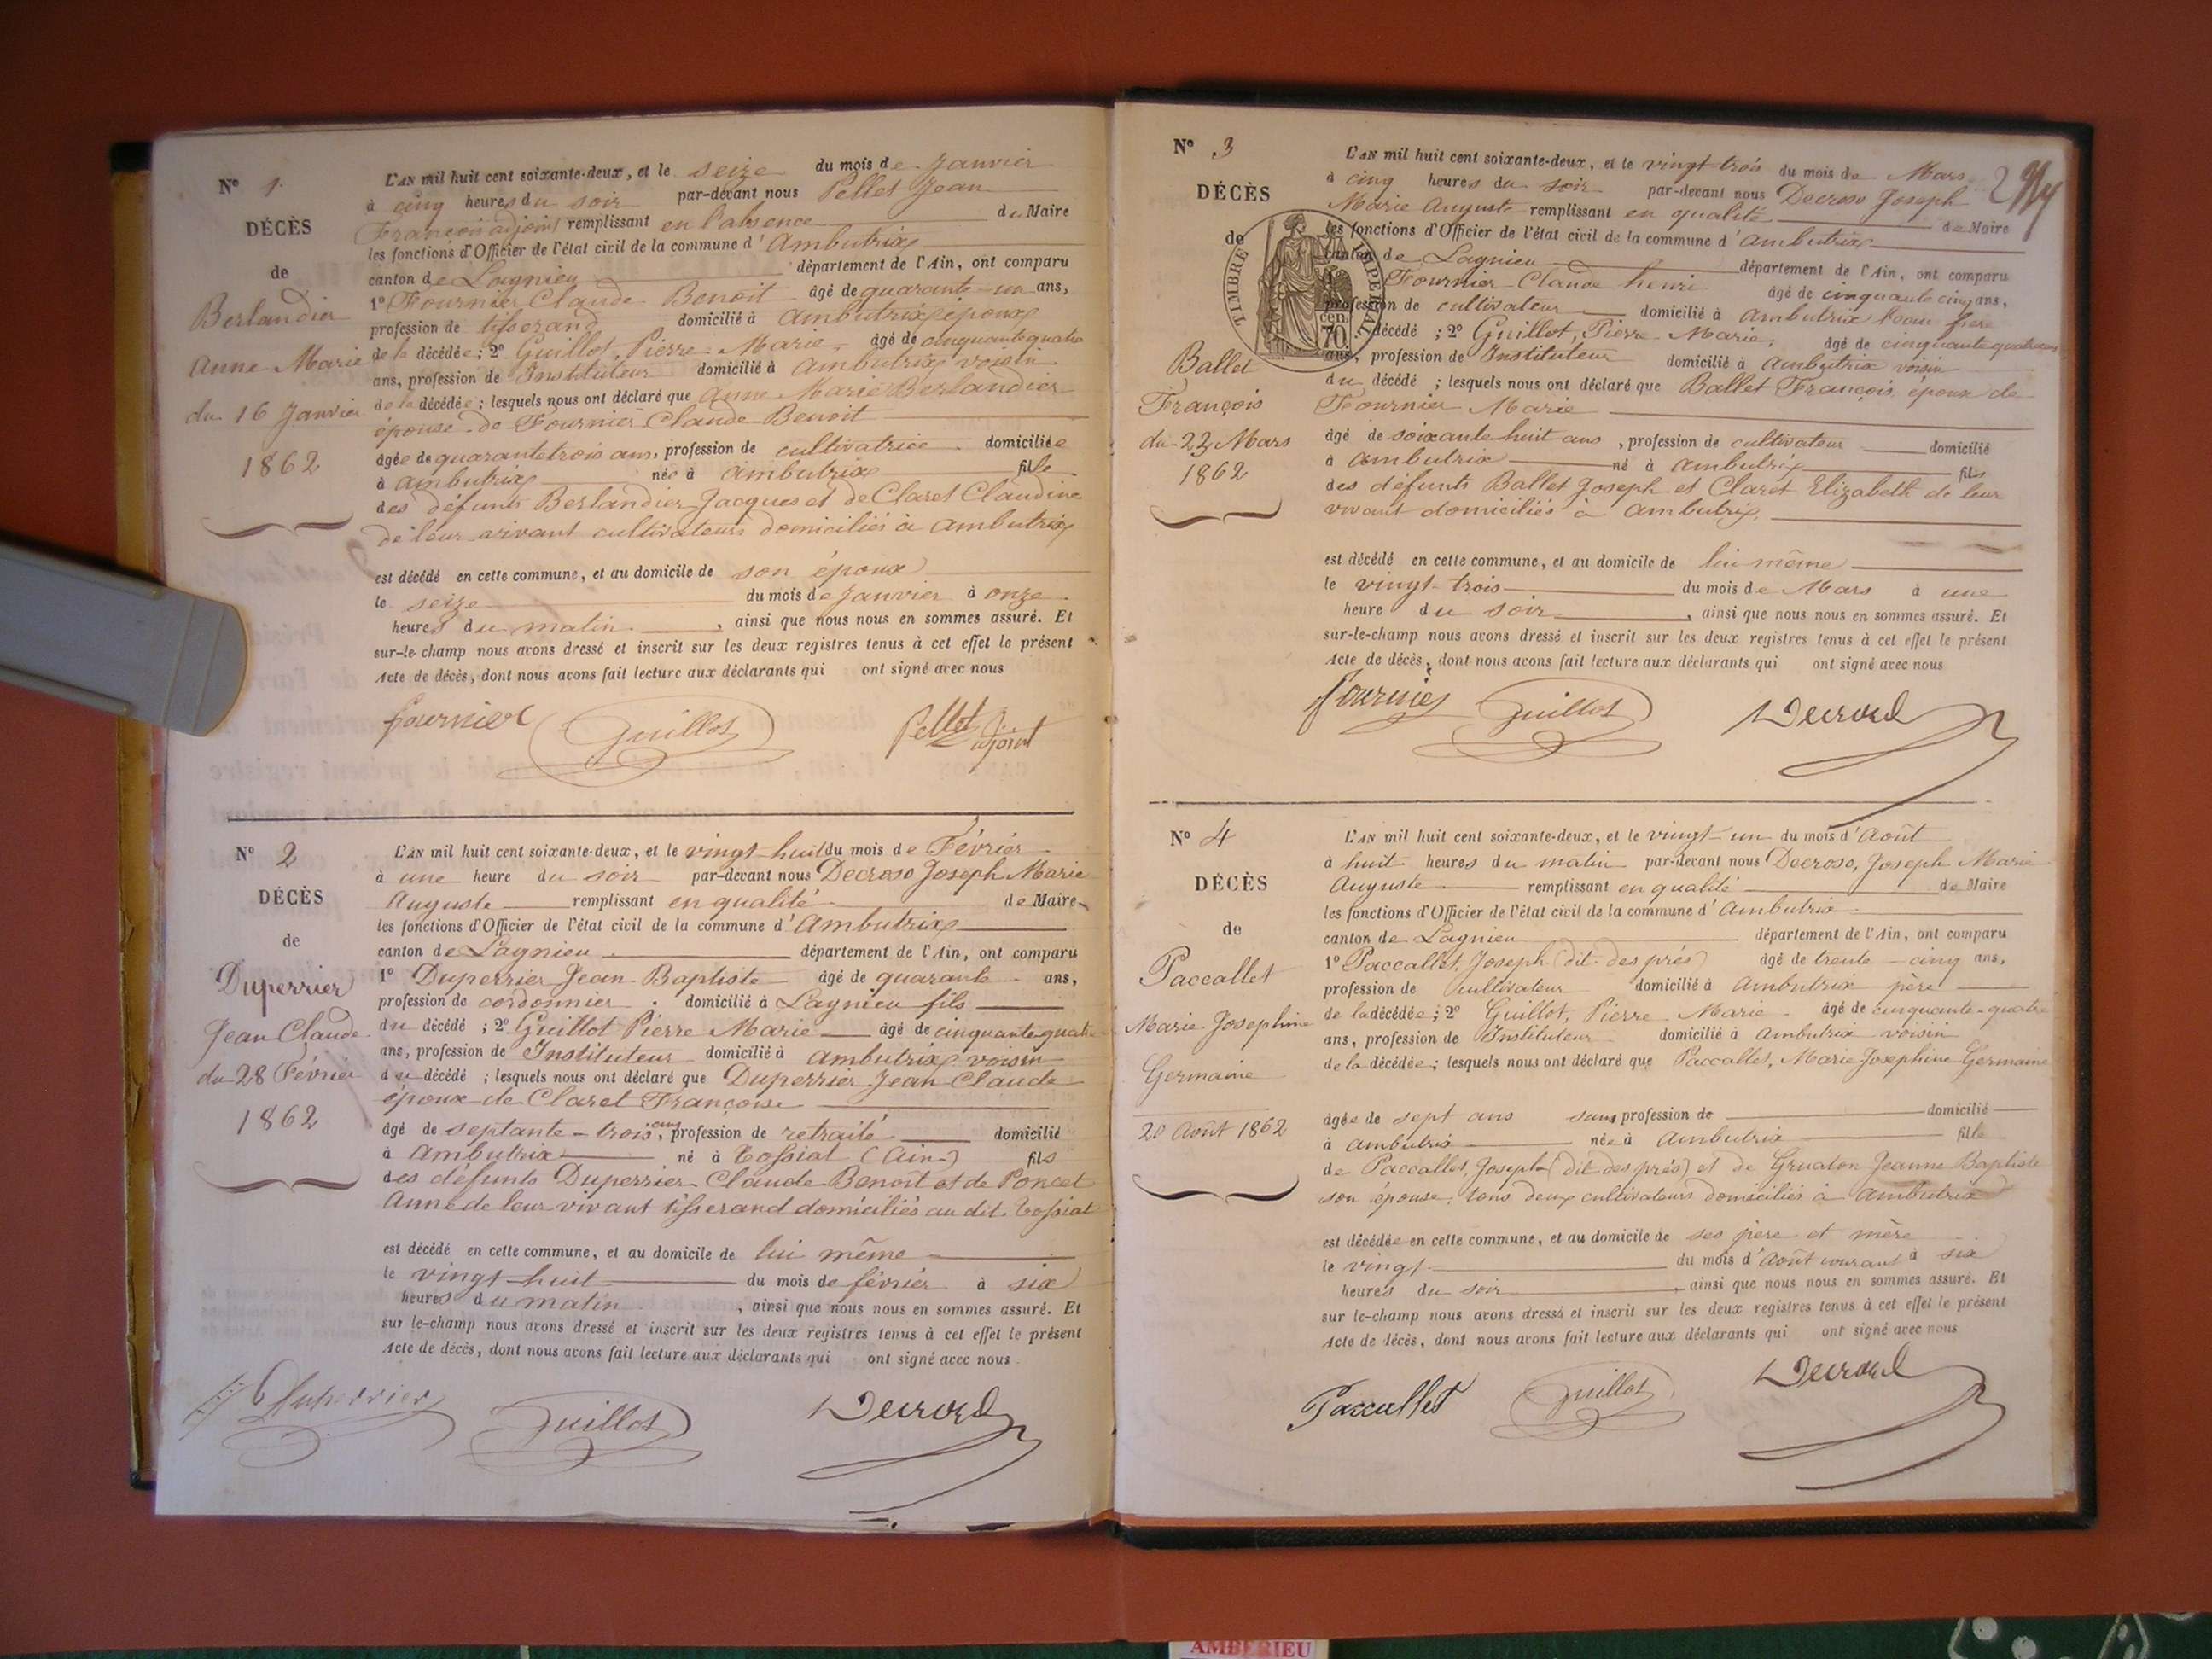 N° 1.
DÉCÈS
de
Berlandier
Anne Marie
du 16 Janvier
1862
L'AN mil huit cent soixante-deux, et le seize du mois de Janvier
à cinq heures du soir par-devant nous Pellet Jean
François adjoint remplissant en l'absence du Maire
les fonctions d'Officier de l'état civil de la commune d'Ambutrix
canton de Lagnieu département de l'Ain, ont comparu
1° Fournier Claude Benoit âgé de quarante-un ans,
profession de tisserand domicilié à Ambutrix époux
de la décédée; 2° Guillot, Pierre Marie, âgé de cinquante quatre
ans, profession de Instituteur domicilié à Ambutrix voisin
de la décédée; lesquels nous ont déclaré que Anne Marie Berlandier
épouse de Fournier Claude Benoit
âgée de quarante trois ans, profession de cultivatrice domiciliée
à Ambutrix née à Ambutrix fille
des défunts Berlandier Jacques et de Claret Claudine
de leur vivant cultivateurs domiciliés à Ambutrix
est décédé en cette commune, et au domicile de son époux
le seize du mois de Janvier à onze
heures du matin, ainsi que nous nous en sommes assuré. Et
sur-le-champ nous avons dressé et inscrit sur les deux registres tenus à cet effet le présent
Acte de décès, dont nous avons fait lecture aux déclarants qui ont signé avec nous
fournier Guillot Pellet adjoint
N° 2
DÉCÈS
de
Duperrier
Jean Claude
du 28 Février
1862
L'AN mil huit cent soixante-deux, et le vingt-huit du mois de Février
à une heure du soir par-devant nous Decroso Joseph Marie
Auguste remplissant en qualité de Maire
les fonctions d'Officier de l'état civil de la commune d'Ambutrix
canton de Lagnieu département de l'Ain, ont comparu
1° Duperrier Jean Baptiste âgé de quarante ans,
profession de cordonnier domicilié à Lagnieu fils
du décédé; 2° Guillot Pierre Marie âgé de cinquante quatre
ans, profession de Instituteur domicilié à Ambutrix voisin
du décédé; lesquels nous ont déclaré que Duperrier Jean Claude
époux de Claret Françoise
âgé de septante-trois ans, profession de retraité domicilié
à Ambutrix né à Tossiat (Ain) fils
des défunts Duperrier Claude Benoît et de Poncet
Anne de leur vivant tisserand domiciliés au dit Tossiat
est décédé en cette commune, et au domicile de lui même
le vingt-huit du mois de février à six
heures du matin, ainsi que nous nous en sommes assuré. Et
sur le-champ nous avons dressé et inscrit sur les deux registres tenus à cet effet le présent
Acte de décès, dont nous avons fait lecture aux déclarants qui ont signé avec nous
Duperrier Guillot Decroso
N° 3
DÉCÈS
de
TIMBRE IMPERIAL
70 cen.
Ballet
François
du 23 Mars
1862
L'AN mil huit cent soixante-deux, et le vingt trois du mois de Mars
à cinq heures du soir par-devant nous Decroso Joseph
Marie Auguste remplissant en qualité de Maire
les fonctions d'Officier de l'état civil de la commune d'Ambutrix
canton de Lagnieu département de l'Ain, ont comparu
Fournier Claude henri âgé de cinquante cinq ans,
profession de cultivateur domicilié à Ambutrix beau frère
décédé; 2° Guillot, Pierre Marie, âgé de cinquante quatre
ans, profession de Instituteur domicilié à Ambutrix voisin
du décédé; lesquels nous ont déclaré que Ballet François époux de
Fournier Marie
âgé de soixante huit ans, profession de cultivateur domicilié
à Ambutrix né à Ambutrix fils
des défunts Ballet Joseph et Claret Elizabeth de leur
vivant domiciliés à Ambutrix
est décédé en cette commune, et au domicile de lui même
le vingt-trois du mois de Mars à une
heure du soir, ainsi que nous nous en sommes assuré. Et
sur-le-champ nous avons dressé et inscrit sur les deux registres tenus à cet effet le présent
Acte de décès, dont nous avons fait lecture aux déclarants qui ont signé avec nous
fournier Guillot Decroso
N° 4
DÉCÈS
de
Paccallet
Marie Josephine
Germaine
20 Août 1862
L'AN mil huit cent soixante-deux, et le vingt-un du mois d'Août
à huit heures du matin par-devant nous Decroso, Joseph Marie
Auguste remplissant en qualité de Maire
les fonctions d'Officier de l'état civil de la commune d'Ambutrix
canton de Lagnieu département de l'Ain, ont comparu
1° Paccallet, Joseph (dit des prés) âgé de trente-cinq ans,
profession de cultivateur domicilié à Ambutrix père
de la décédée; 2° Guillot, Pierre Marie âgé de cinquante-quatre
ans, profession de Instituteur domicilié à Ambutrix voisin
de la décédée; lesquels nous ont déclaré que Paccallet, Marie Josephine Germaine
âgée de sept ans sans profession de domicilié
à Ambutrix née à Ambutrix fille
de Paccallet, Joseph (dit des prés) et de Gruaton Jeanne Baptiste
son épouse, tous deux cultivateurs domiciliés à Ambutrix
est décédée en cette commune, et au domicile de ses père et mère
le vingt du mois d'Août courant à six
heures du soir, ainsi que nous nous en sommes assuré. Et
sur le-champ nous avons dressé et inscrit sur les deux registres tenus à cet effet le présent
Acte de décès, dont nous avons fait lecture aux déclarants qui ont signé avec nous
Paccallet Guillot Decroso
AMBERIEU